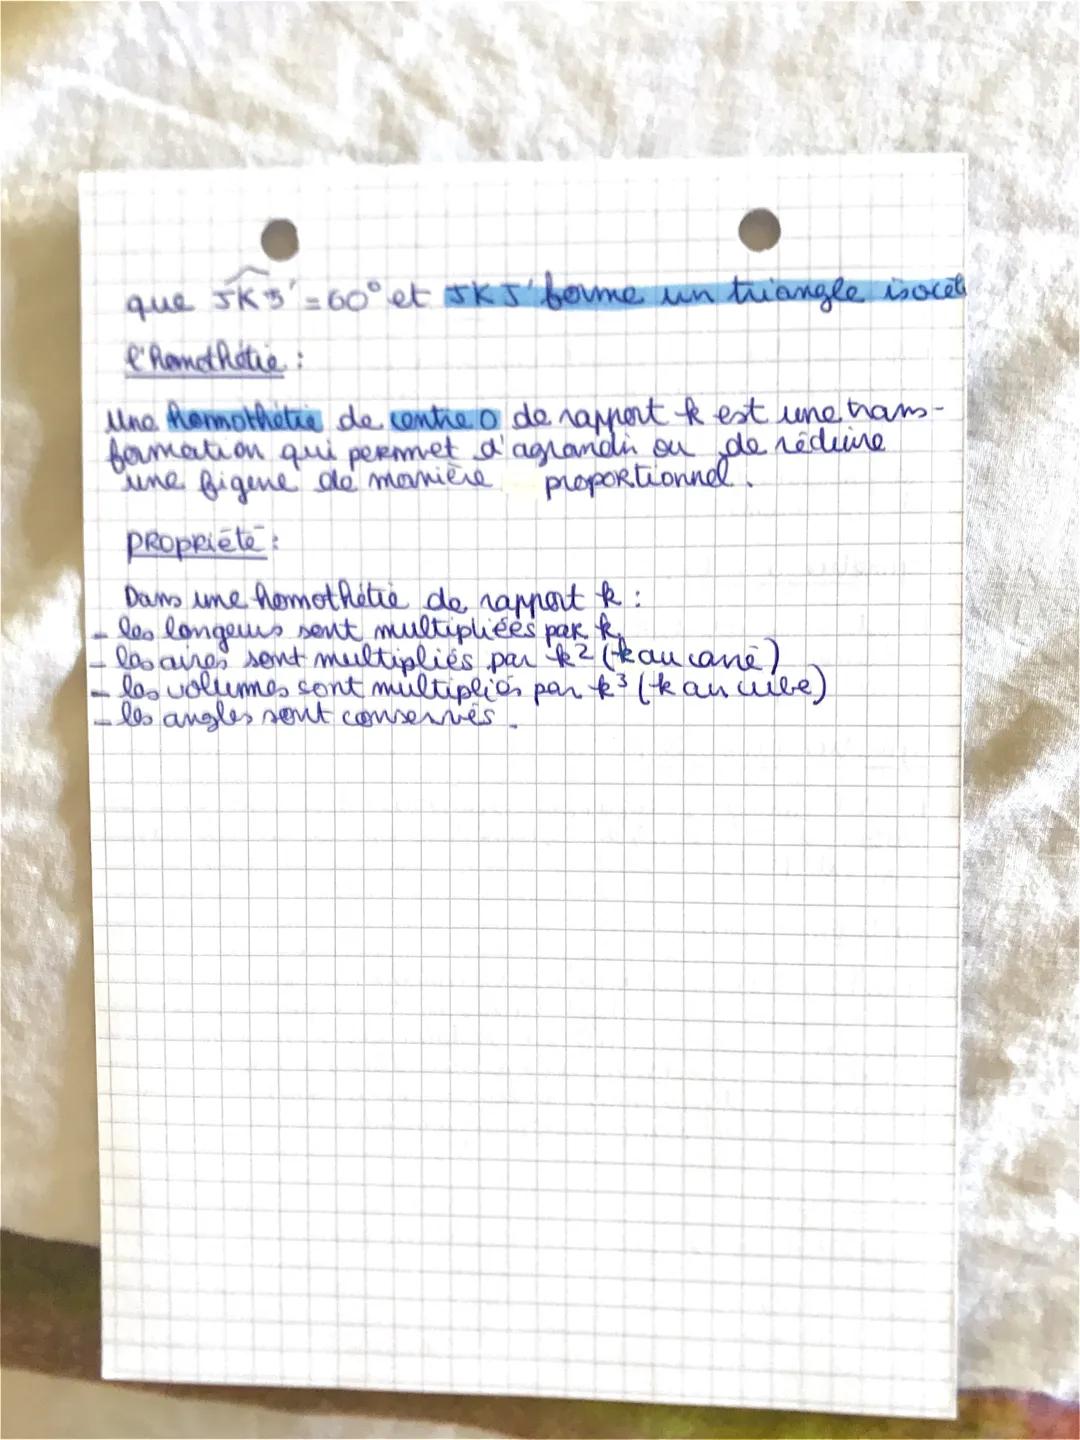 que JKJ'=60° et JKJ' forme un triangle isocèl
l'homothétie :
Une homothétie de centre O de rapport k est une trans-
formation qui permet d'agrandir ou de réduire
une figure de manière proportionnel.
PROPRIété :
Dans une homothétie de rapport k :
- les longeurs sont multipliées par k.
- les aires sont multipliés par k² (k au carré)
- les volumes sont multipliés par k³ (k au cube)
- les angles sont conservés.